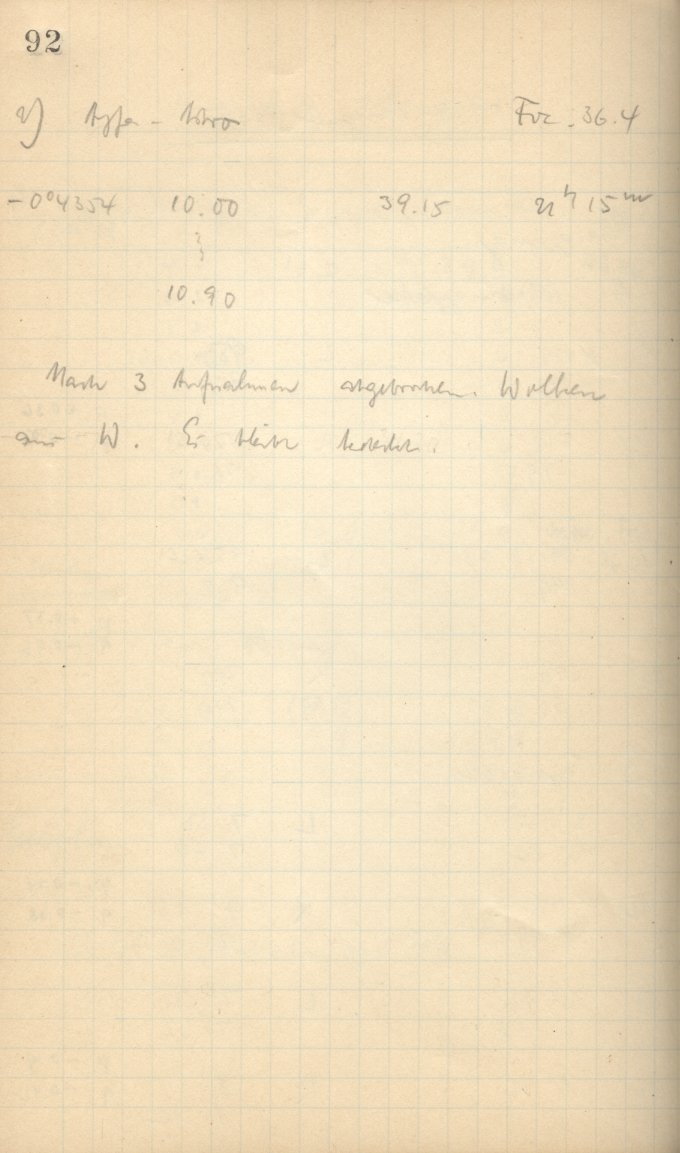 92
2) Agfa - Astro Foc. 36.4
-0°4354 10.00 39.15 21h 15m
10.90
Nach 3 Aufnahmen abgebrochen. Wolken
aus W. Es bleibt bedeckt.